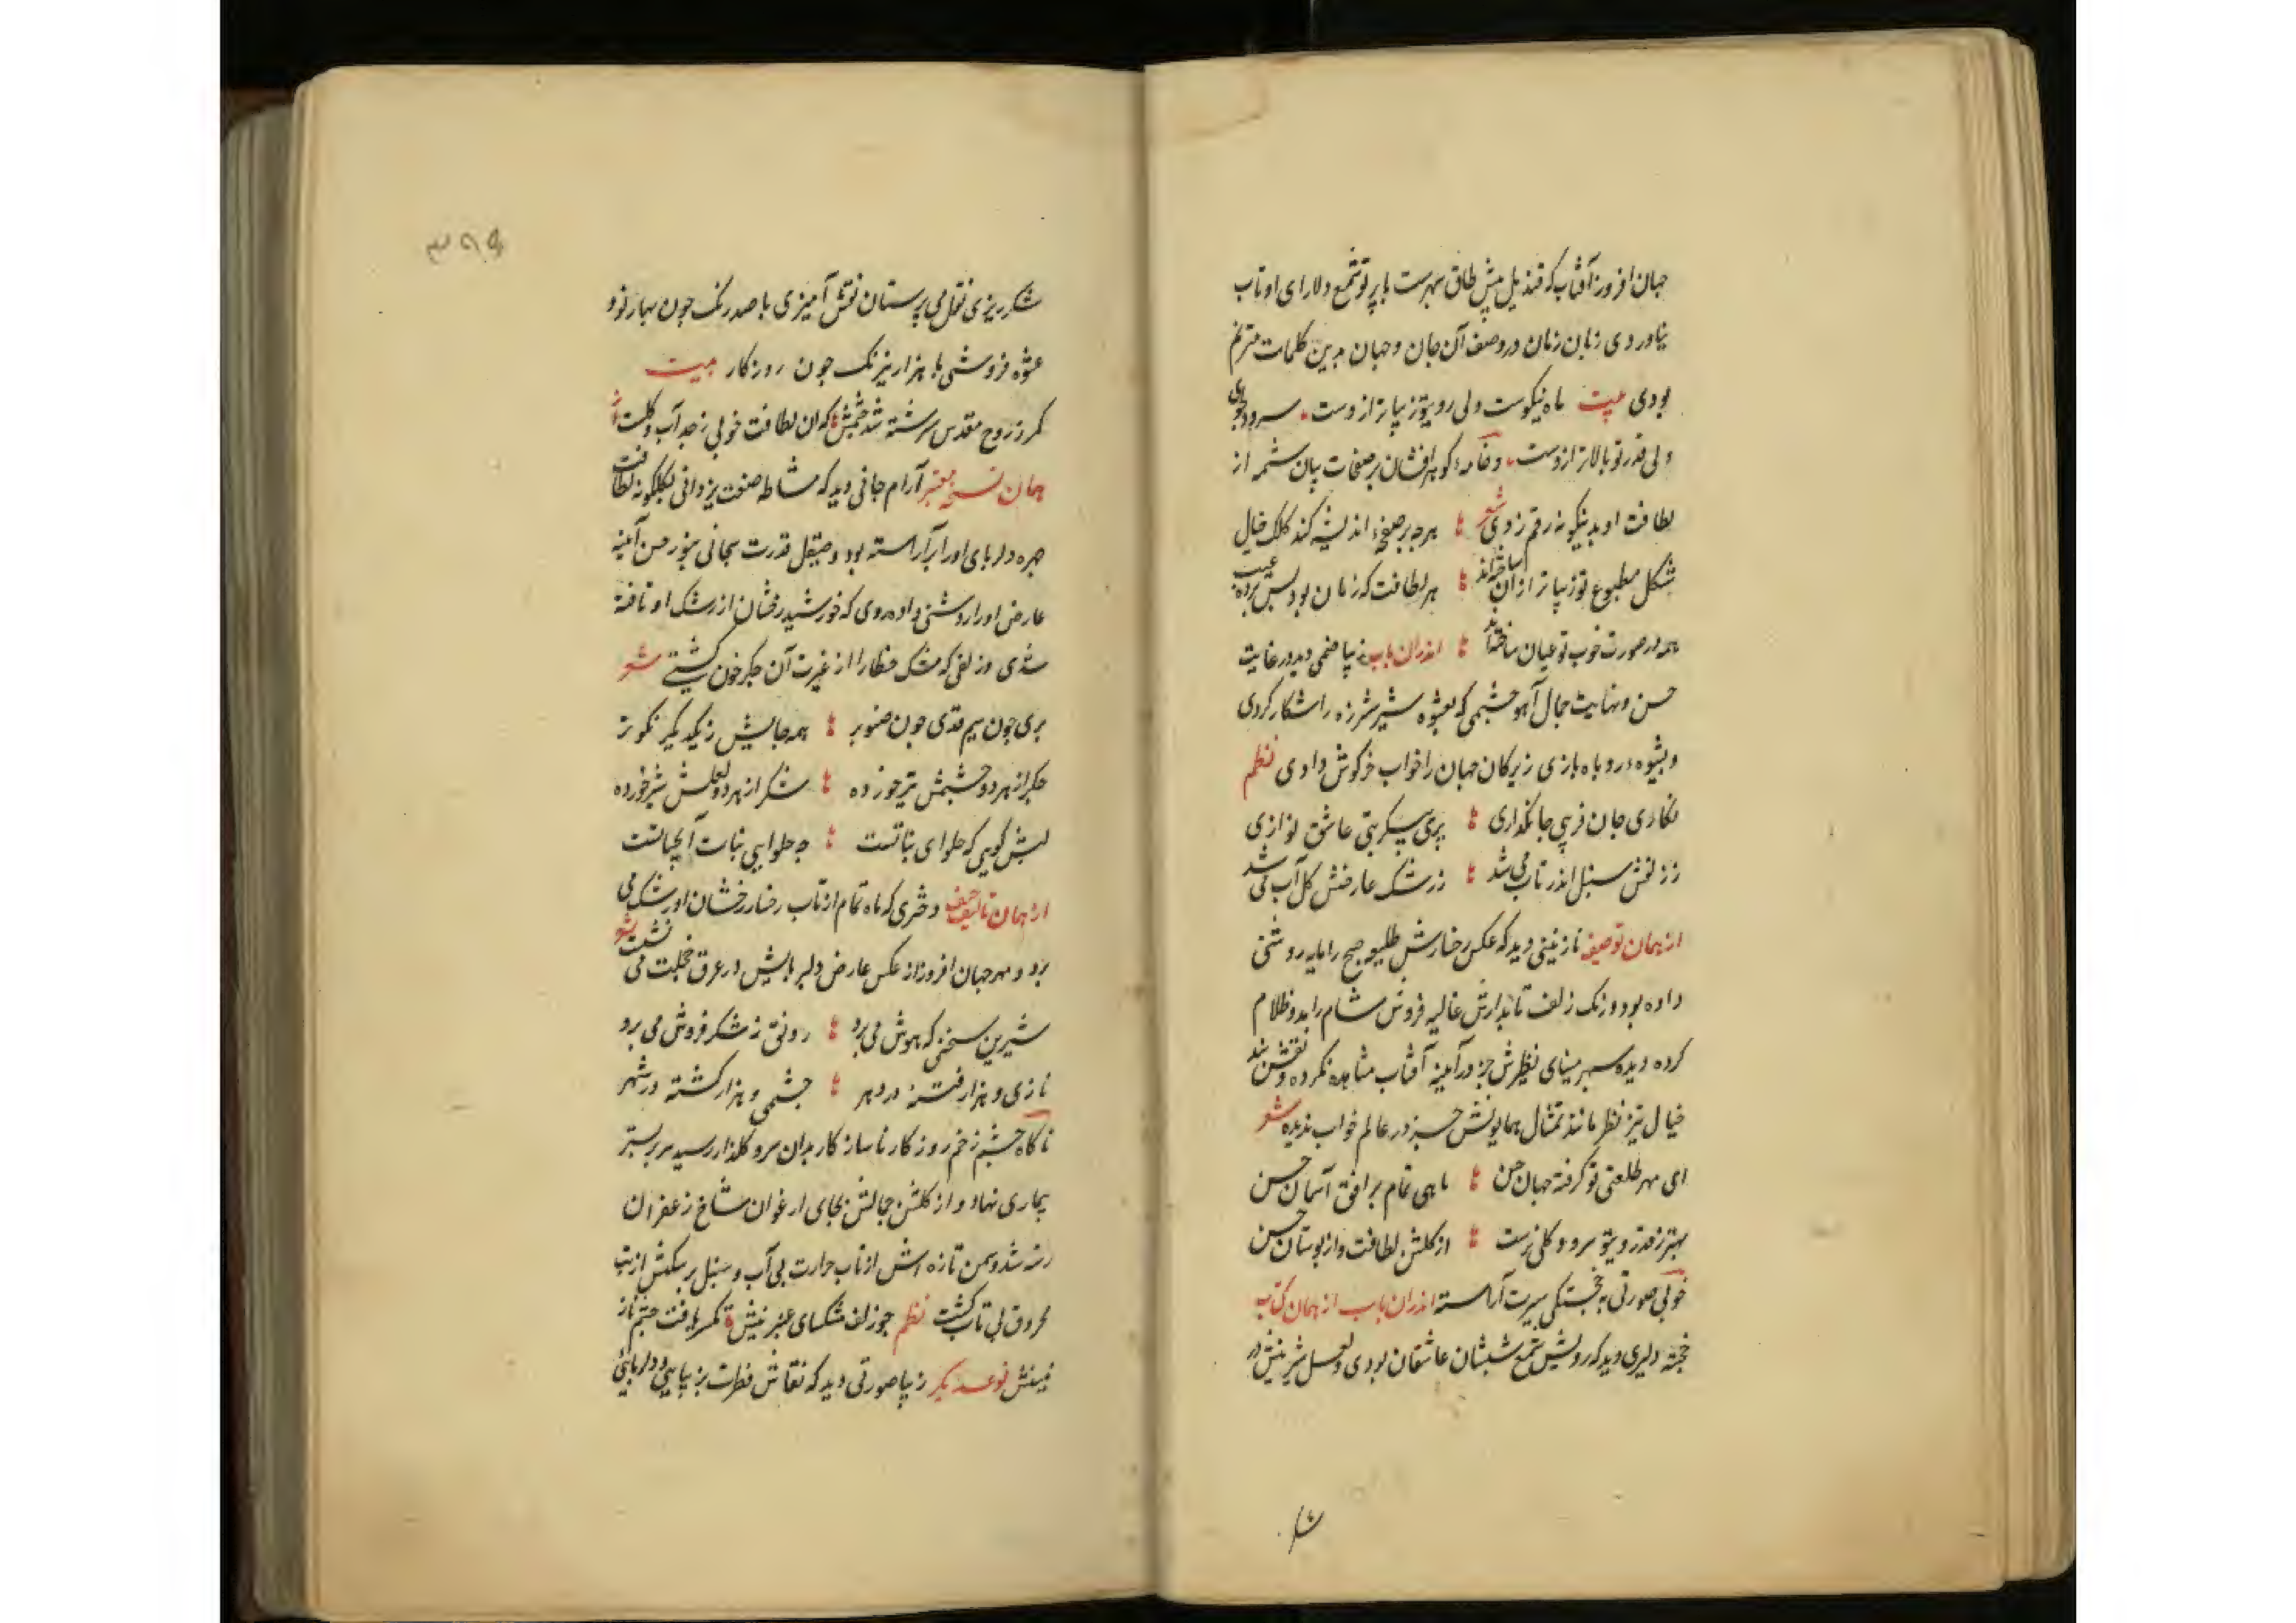 جهان افروز آفتاب که قندیل پیش طاق سپهرست با پرتو شمع دلارای او تاب
نیاوردی زبان زمان در وصف آن جان و جهان بدین کلمات مترنم
بودی بیت ماه نیکوست ولی روی تو زیباتر ازوست سرو دلجوی
ولی قدر تو بالاتر ازوست و خامه کوهر افشان بر صفحات بیان شمه از
لطافت او بدینکونه رقم زدی شعر هرچه بر صفحه اندیشه کند کلک خیال
شکل مطبوع تو زیباتر ازان ساخته اند هر لطافت که نهان بود پس پرده غیب
همه در صورت خوب تو عیان ساخته اند اندران باب زیبا صنمی دید در غایت
حسن و نهایت جمال آهو چشمی که بعشوه شیر شرزه را شکار کردی
و بشیوه روباه بازی زیرکان جهان را خواب خرکوش دادی نظم
نکاری جان فریبی جانکدازی پری پیکر بتی عاشق نوازی
ز زلفش سنبل اندر تاب می شد ز رشک عارضش کل آب می شد
از همان توصیف نازنینی دید که عکس رخسارش طلیعه صبح را مایه روشنی
داده بود و رنک زلف تابدارش غالیه فروش شام را مدد ظلام
کرده دیده سپهر مینای نظیرش جز در آینه آفتاب مشاهده نکرده و نقش بند
خیال تیز نظر مانند تمثال همایونش جز در عالم خواب ندیده شعر
ای مهر طلعتی تو کرفته جهان حسن ماهی تمام بر افق آسمان حسن
بهتر ز قد و روی تو سرو و کلی نرست از کلشن لطافت و از بوستان حسن
خوبی صورتی بخجستکی سیرت آراسته اندران باب از همان کتاب
خجسته دلبری دید که رویش شمع شبستان عاشقان بودی و لعل شیرینش در
شا
۳۹۵
شکر ریزی نقل می پرستان نقش آمیزی با صد رنک چون بهار نو و
عشوه فروشی با هزار نیرنک چون روزکار بیت
مکر ز روح مقدس سرشته شد جسمش که ان لطافت خوبی نه حد آب و کلست
همان نسخه معتبر آرام جانی دید که مشاطه صنعت یزدانی بکلکونه لطافت
چهره دلربای او را آراسته بود و صیقل قدرت سبحانی بنور حسن آینه
عارض او را روشنی داده روی که خورشید رخشان از رشک او تافته
شدی و زلفی که مشک ختا را از غیرت آن جکر خون کشتی شعر
بری چون سیم قدی چون صنوبر همه جایش ز یکدیکر نکوتر
جکر از هر دو چشمش تیر خورده شکر از هر دو لعلش شیر خورده
لبش کویی که حلوای نباتست چه حلوایی نبات آب حیاتست
از همان تالیف دختری که ماه تمام از تاب رخسار رخشان او رشک می
برد و مهر جهان افروز از عکس عارض دلبربایش در عرق خجلت می نشست شعر
شیرین سخنی که هوش می برد رونق ز شکر فروش می برد
نازی و هزار فتنه در دهر چشمی و هزار کشته در شهر
ناکاه چشم زخم روزکار ناسازکار بدان سرو کلعذار رسید سر بر بستر
بیماری نهاد و از کلشن جمالش بجای ارغوان شاخ زعفران
رسته شد و سمن تازه اش از تاب حرارت بی آب و سنبل پر شکنش از تب
محروق بی تاب کشت نظم چو زلف مشکسای عنبرینش
نوع دیکر زیبا صورتی دید که نقاش فطرت بزیبایی و دلربایی